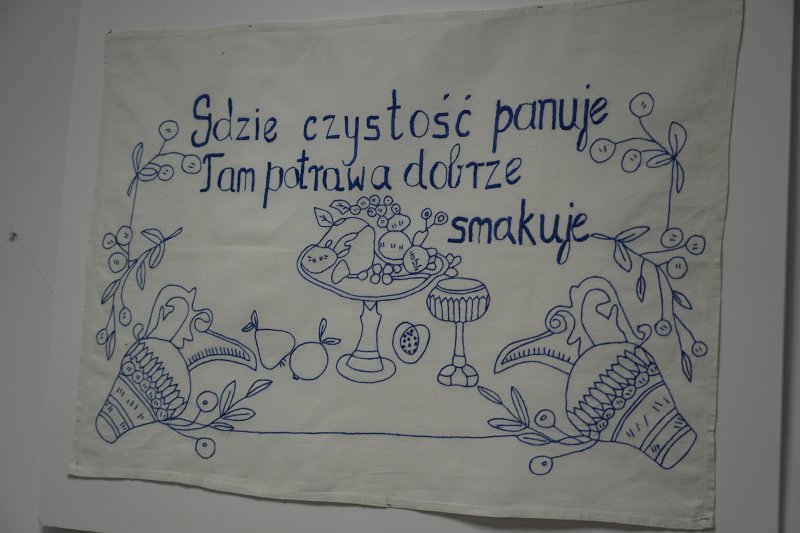 Gdzie czystość panuje
Tam potrawa dobrze
smakuje